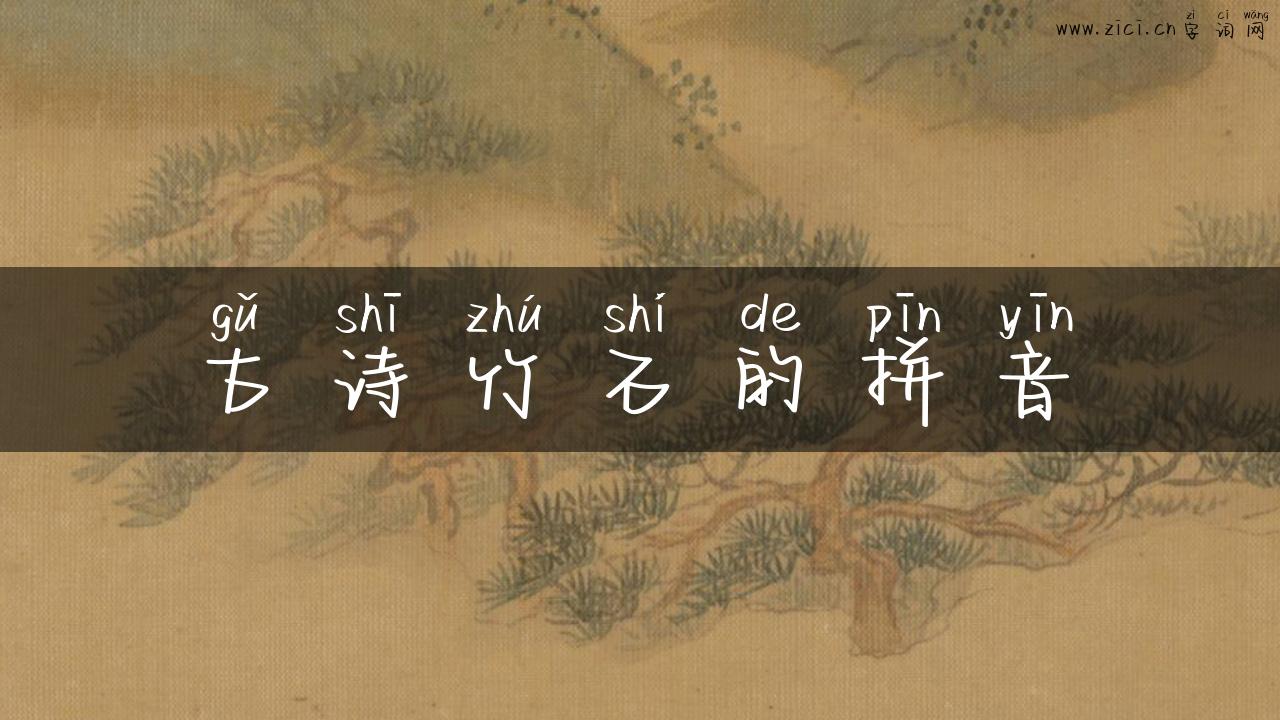 zì cí wǎng
www.zici.cn 字词网
gǔ shī zhú shí de pīn yīn
古诗竹石的拼音